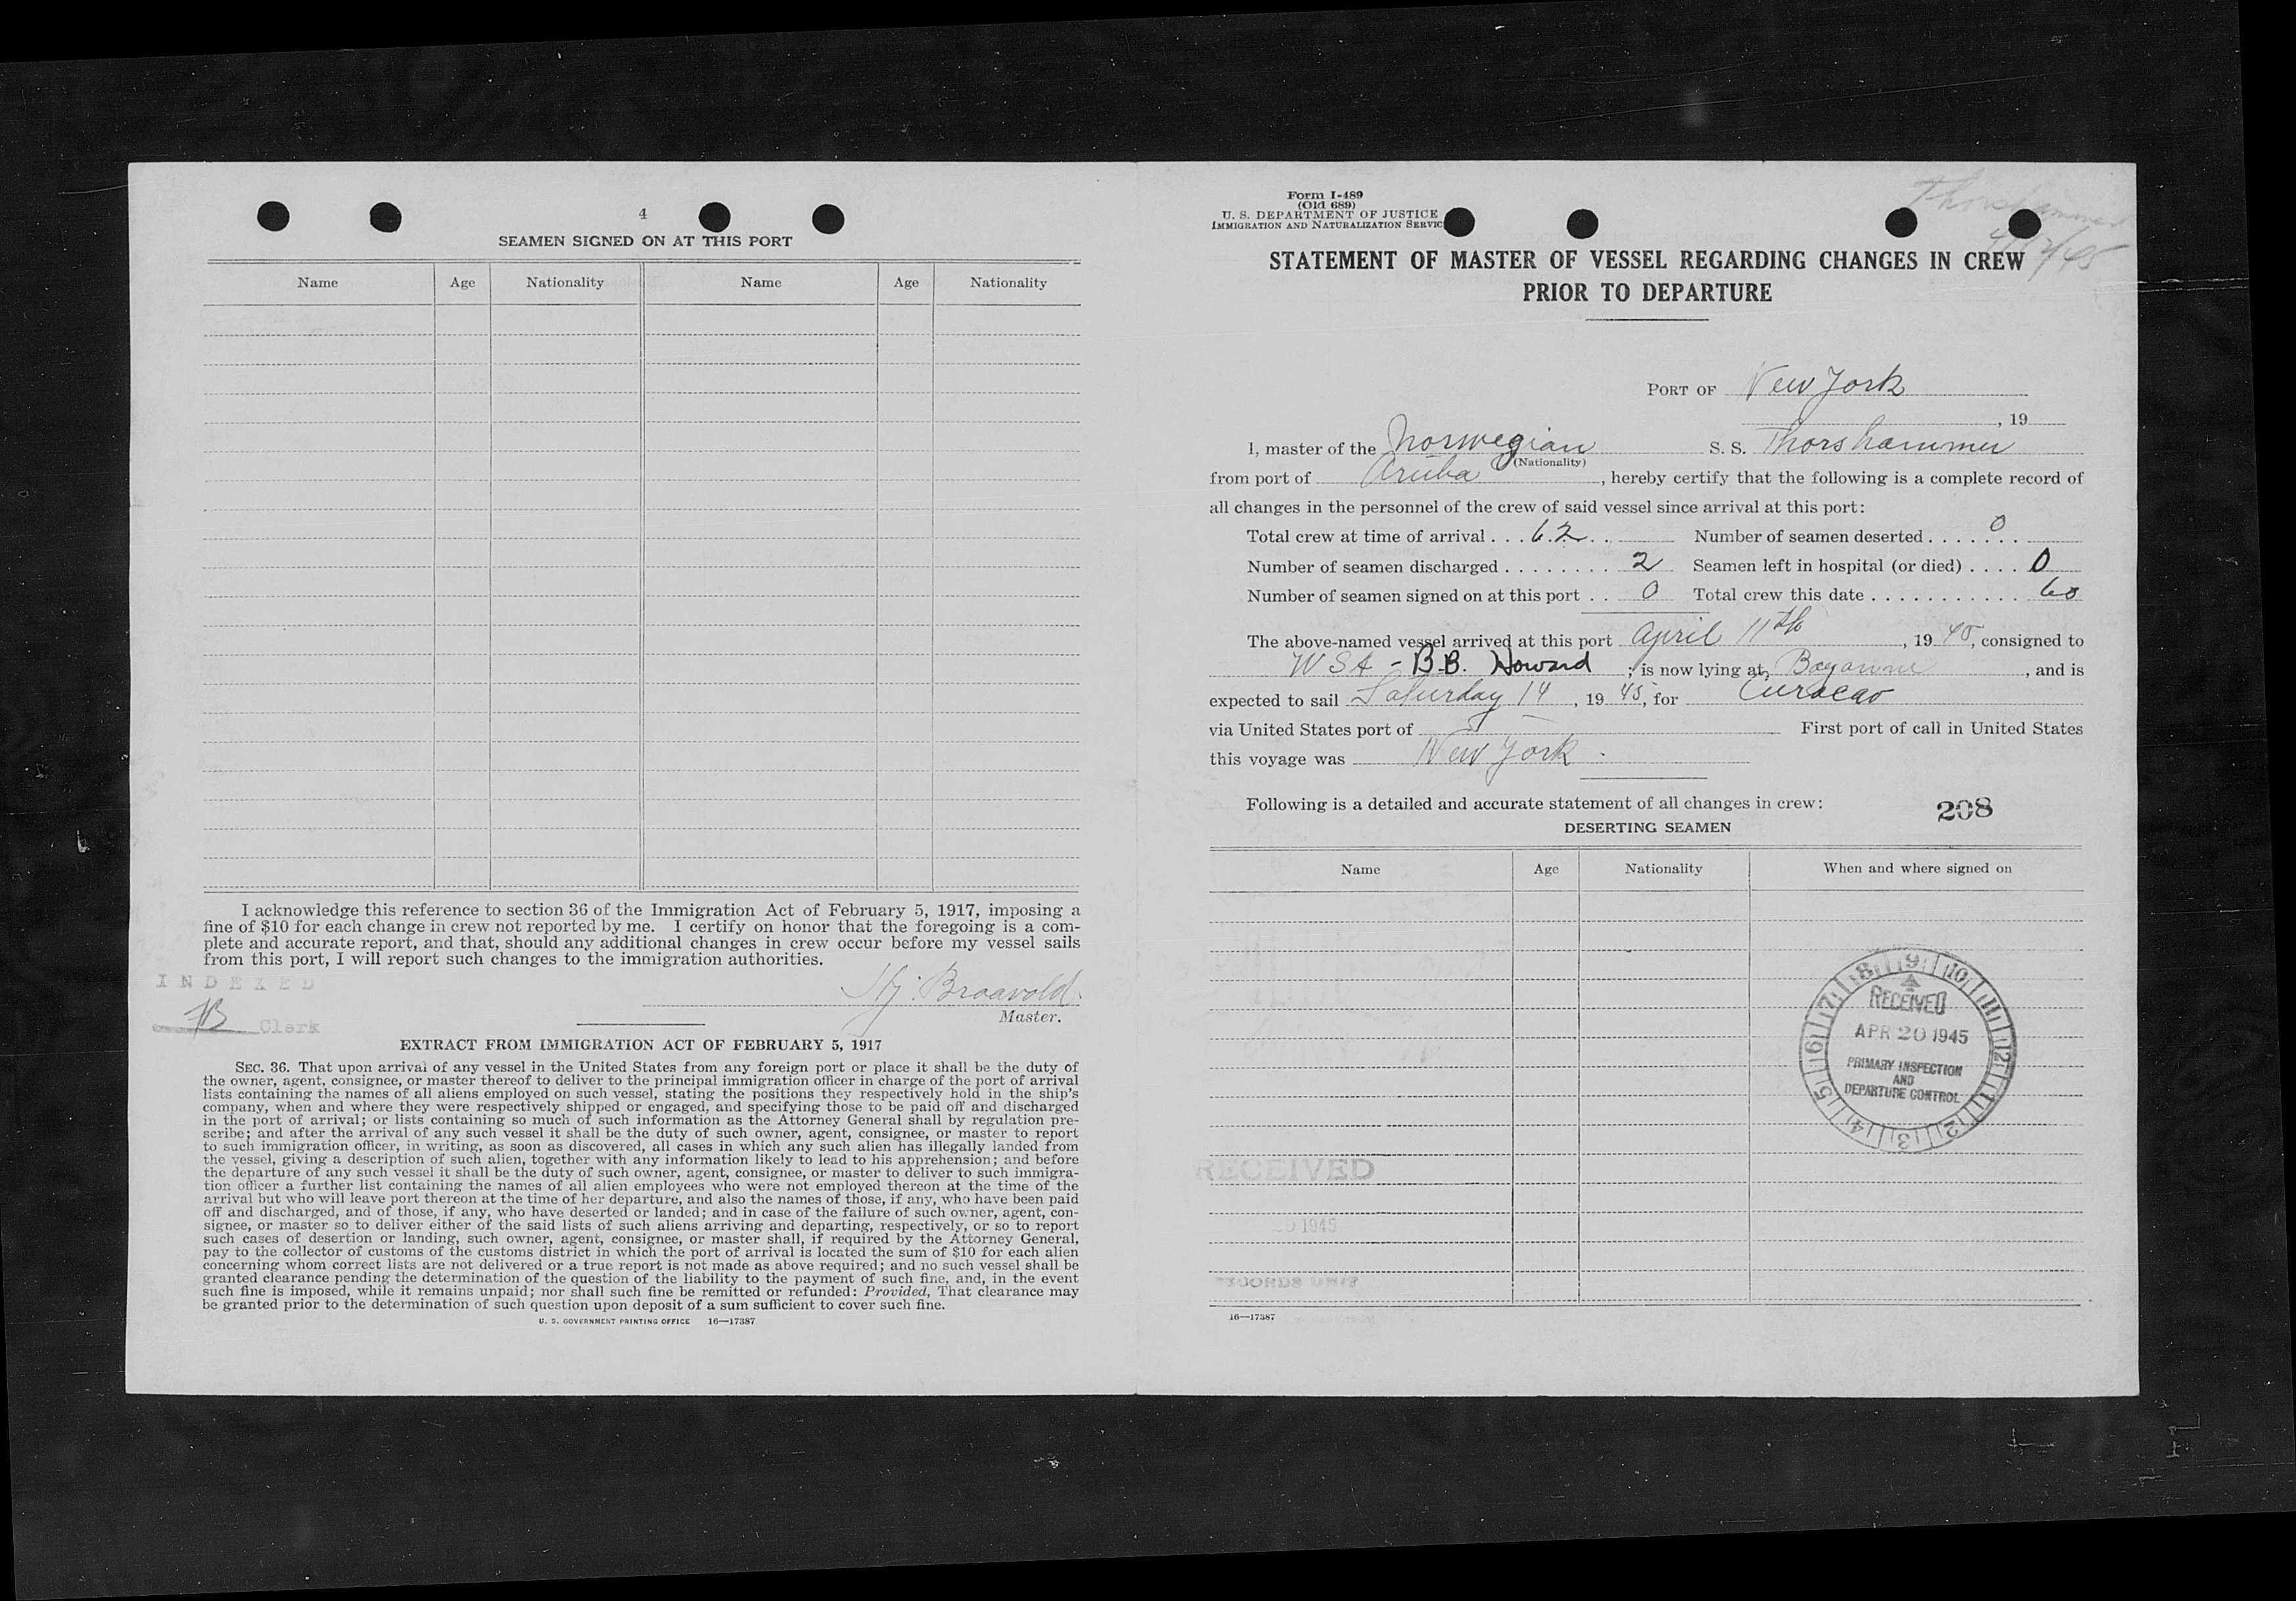 4
SEAMEN SIGNED ON AT THIS PORT
Name Age Nationality Name Age Nationality
I acknowledge this reference to section 36 of the Immigration Act of February 5, 1917, imposing a
fine of $10 for each change in crew not reported by me. I certify on honor that the foregoing is a com-
plete and accurate report, and that, should any additional changes in crew occur before my vessel sails
from this port, I will report such changes to the immigration authorities.
INDEXED
Hj. Braavold
Clerk
Master.
EXTRACT FROM IMMIGRATION ACT OF FEBRUARY 5, 1917
SEC. 36. That upon arrival of any vessel in the United States from any foreign port or place it shall be the duty of
the owner, agent, consignee, or master thereof to deliver to the principal immigration officer in charge of the port of arrival
lists containing the names of all aliens employed on such vessel, stating the positions they respectively hold in the ship's
company, when and where they were respectively shipped or engaged, and specifying those to be paid off and discharged
in the port of arrival; or lists containing so much of such information as the Attorney General shall by regulation pre-
scribe; and after the arrival of any such vessel it shall be the duty of such owner, agent, consignee, or master to report
to such immigration officer, in writing, as soon as discovered, all cases in which any such alien has illegally landed from
the vessel, giving a description of such alien, together with any information likely to lead to his apprehension; and before
the departure of any such vessel it shall be the duty of such owner, agent, consignee, or master to deliver to such immigra-
tion officer a further list containing the names of all alien employees who were not employed thereon at the time of the
arrival but who will leave port thereon at the time of her departure, and also the names of those, if any, who have been paid
off and discharged, and of those, if any, who have deserted or landed; and in case of the failure of such owner, agent, con-
signee, or master so to deliver either of the said lists of such aliens arriving and departing, respectively, or so to report
such cases of desertion or landing, such owner, agent, consignee, or master shall, if required by the Attorney General,
pay to the collector of customs of the customs district in which the port of arrival is located the sum of $10 for each alien
concerning whom correct lists are not delivered or a true report is not made as above required; and no such vessel shall be
granted clearance pending the determination of the question of the liability to the payment of such fine, and, in the event
such fine is imposed, while it remains unpaid; nor shall such fine be remitted or refunded: Provided, That clearance may
be granted prior to the determination of such question upon deposit of a sum sufficient to cover such fine.
U. S. GOVERNMENT PRINTING OFFICE 16—17387
Form I-489
(Old 689)
U. S. DEPARTMENT OF JUSTICE
IMMIGRATION AND NATURALIZATION SERVIC
Thorshammer
STATEMENT OF MASTER OF VESSEL REGARDING CHANGES IN CREW
PRIOR TO DEPARTURE
PORT OF New York
, 19
I, master of the Norwegian S. S. Thorshammer
(Nationality)
from port of Aruba, hereby certify that the following is a complete record of
all changes in the personnel of the crew of said vessel since arrival at this port:
Total crew at time of arrival . . . 62 . . Number of seamen deserted . . . . . . . 0
Number of seamen discharged . . . . . . . . 2 Seamen left in hospital (or died) . . . . 0
Number of seamen signed on at this port . . 0 Total crew this date . . . . . . . . . . . 60
The above-named vessel arrived at this port April 11th, 1945, consigned to
WSA - B.B. Howard; is now lying at Bayonne, and is
expected to sail Saturday 14, 1945, for Curacao
via United States port of — First port of call in United States
this voyage was New York.
Following is a detailed and accurate statement of all changes in crew:
208
DESERTING SEAMEN
Name Age Nationality When and where signed on
8 9 10 11 12 1 2 3 4 5 6 7
RECEIVED
APR 20 1945
PRIMARY INSPECTION
AND
DEPARTURE CONTROL
RECEIVED
1945
16—17387